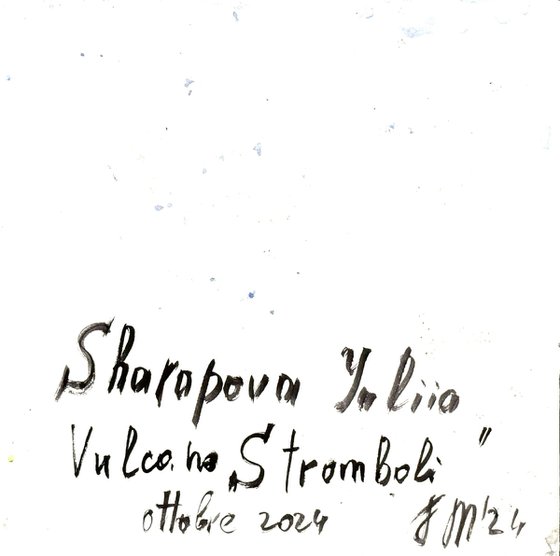 Sharapova Yuliia
Vulcano „Stromboli"
ottobre 2024